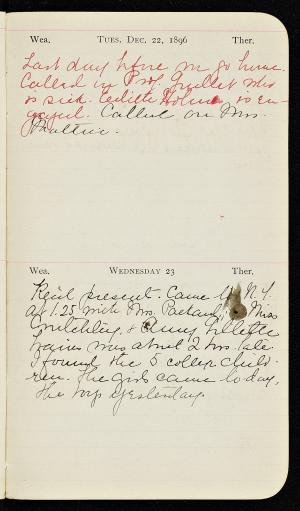 Wea. TUES. DEC. 22, 1896 Ther.
Last day before we go home.
Called on Prof. Guillet who
is sick. Edith Holmes is en-
gaged. Called on Mrs.
Wea. WEDNESDAY 23 Ther.
present. Came to N.Y.
at 1.25 with Mrs. Miss
& Gillette
trains was about 2 hrs. late.
I found the 5 college child-
ren. The girls came to day,
the boys yesterday.